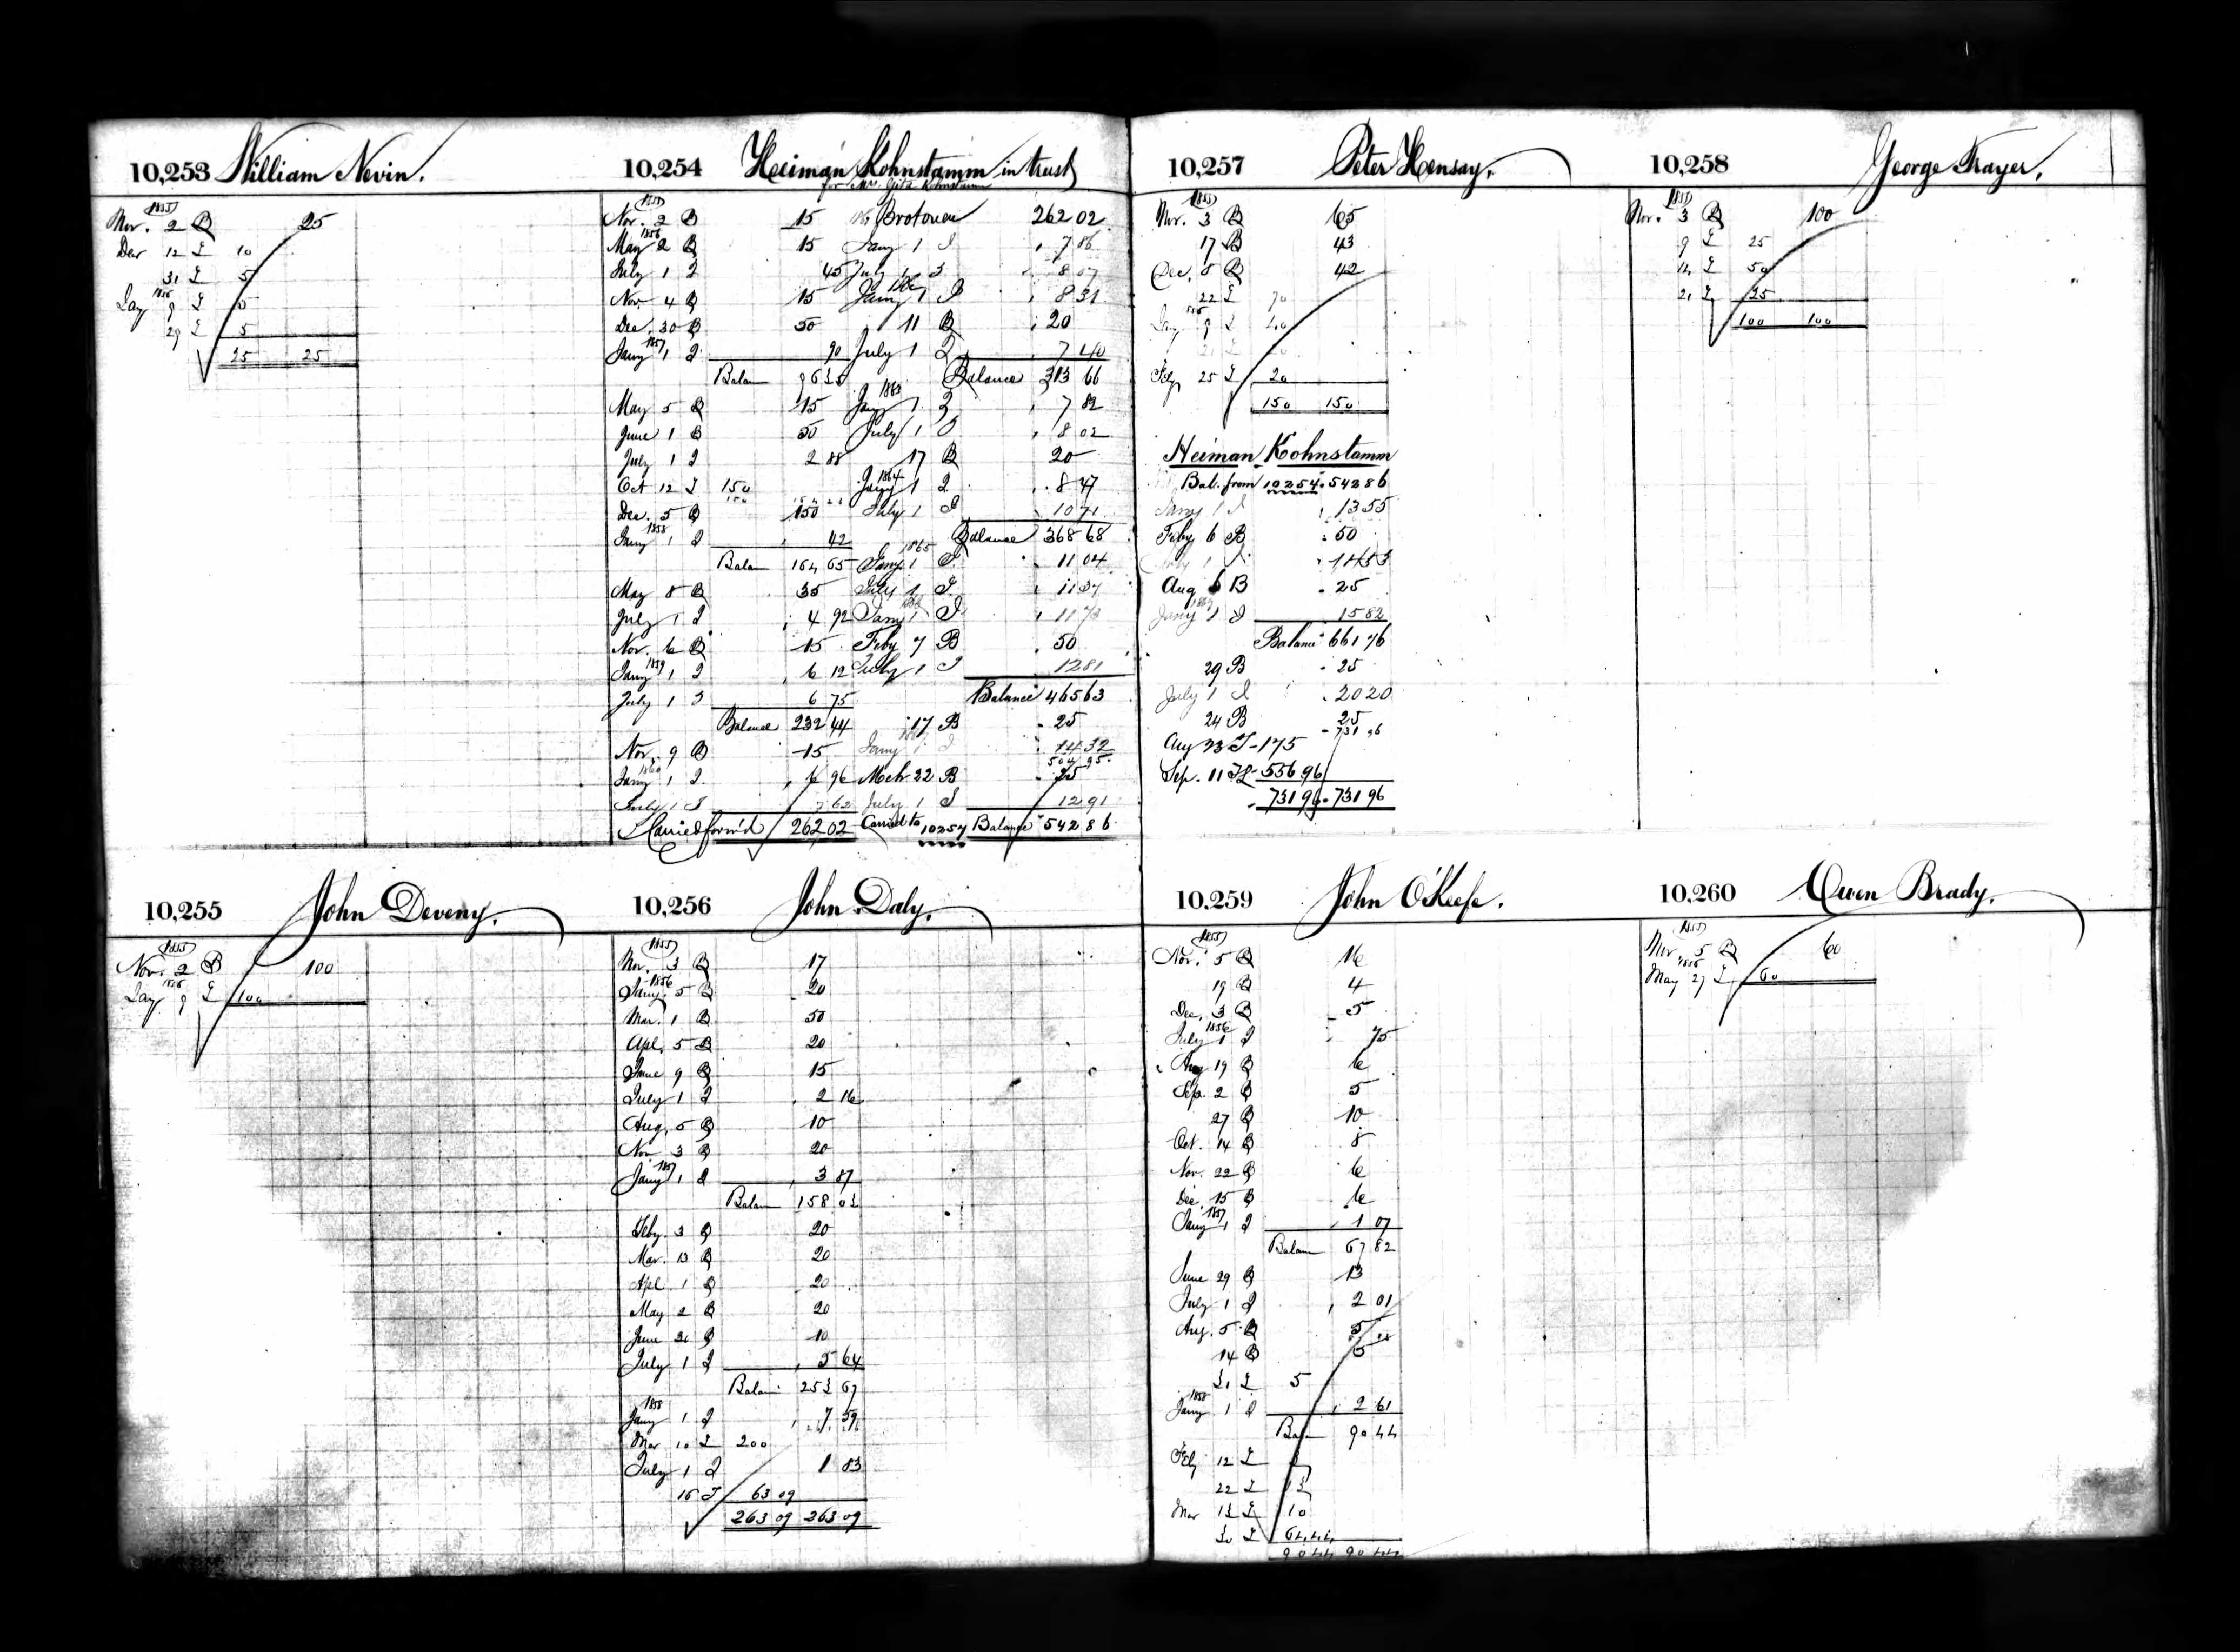 10,253 William Nevin.
1855
Nov. 2 B 25
Dec 12 L 10
31 L 5
1856
Jay 9 L 5
29 L 5
25 25
10,254 Heiman Kohnstamm in trust
for Mrs. Kohnstamm
1855
Nov. 2 B 15
1856
May 2 B 15
July 1 I 45
Nov. 4 B 15
Dec. 30 B 50
1857
Jany 1 I 90
Balan
May 5 B 15
June 1 B 50
July 1 I 2 88
Oct 12 L 150
Dec. 5 B 150
1858
Jany 1 I 42
Balan 164 65
May 8 B 35
July 1 I 4 92
Nov. 6 B 15
1859
Jany 1 I 6 12
July 1 I 6 75
Balance 232 44
Nov. 9 B 15
1860
Jany 1 I 6 96
July 1 I 7 62
Carried form'd 262 02
Bro't over 262 02
Jany 1 I 7 86
July 1 I 8 07
Jany 1 I 8 31
11 B 20
July 1 I 7 40
Balance 313 66
1863
Jany 1 I 7 82
July 1 I 8 02
17 B 20
1864
Jany 1 I 8 47
July 1 I 10 71
Balance 368 68
1865
Jany 1 I 11 04
July 1 I 11 37
Jany 1 I 11 73
Feby 7 B 50
July 1 I 12 81
Balance 465 63
17 B 25
Jany 1 I 14 32
504 95
Mch. 22 B 25
July 1 I 12 91
Carried to 10257 Balance 542 86
10,255 John Deveny.
1855
Nov. 2 B 100
1856
Jay 9 L 100
10,256 John Daly.
1855
Nov. 3 B 17
1856
Jany. 5 B 20
Mar. 1 B 50
Apl. 5 B 20
June 9 B 15
July 1 I 2 16
Aug. 5 B 10
Nov 3 B 20
1857
Jany 1 I 3 87
Balan 158 03
Feby. 3 B 20
Mar. 13 B 20
Apl 1 B 20
May 2 B 20
June 20 B 10
July 1 I 5 64
Balan 253 67
1858
Jany 1 I 7 59
Mar 10 L 200
July 1 I 1 83
16 L 63 09
263 09 263 09
10,257 Peter Hensay.
1855
Nov. 3 B 65
17 B 43
Dec. 8 B 42
22 L 70
1856
Jay 9 L 40
21 L 20
Feby 25 L 20
150 150
Heiman Kohnstamm
Bal. from 10254 542 86
Jany 1 I 13 55
Feby 6 B 50
July 1 I 14 53
Aug 6 B 25
1869
Jany 1 I 15 82
Balance 661 76
29 B 25
July 1 I 20 20
24 B 25
731 96
Aug 23 L 175
Sep. 11 L 556 96
731 96 731 96
10,258 George Frayer.
1855
Nov. 3 B 100
9 L 25
14 L 50
21 L 25
100 100
10,259 John O'Keefe.
1855
Nov. 5 B 16
19 B 4
Dec. 3 B 5
1856
July 1 I 75
Aug 19 B 6
Sep. 2 B 5
27 B 10
Oct. 14 B 8
Nov. 22 B 6
Dec. 15 B 6
1857
Jany 1 I 1 07
Balan 67 82
June 29 B 13
July 1 I 2 01
Aug. 5 B 5
14 B 5
31 L 5
1858
Jany 1 I 2 61
Bala 90 44
Feby 12 L
22 L 13
Mar 13 L 10
30 L 64 44
90 44 90 44
10,260 Owen Brady.
1855
Nov. 5 B 60
1856
May 27 L 60